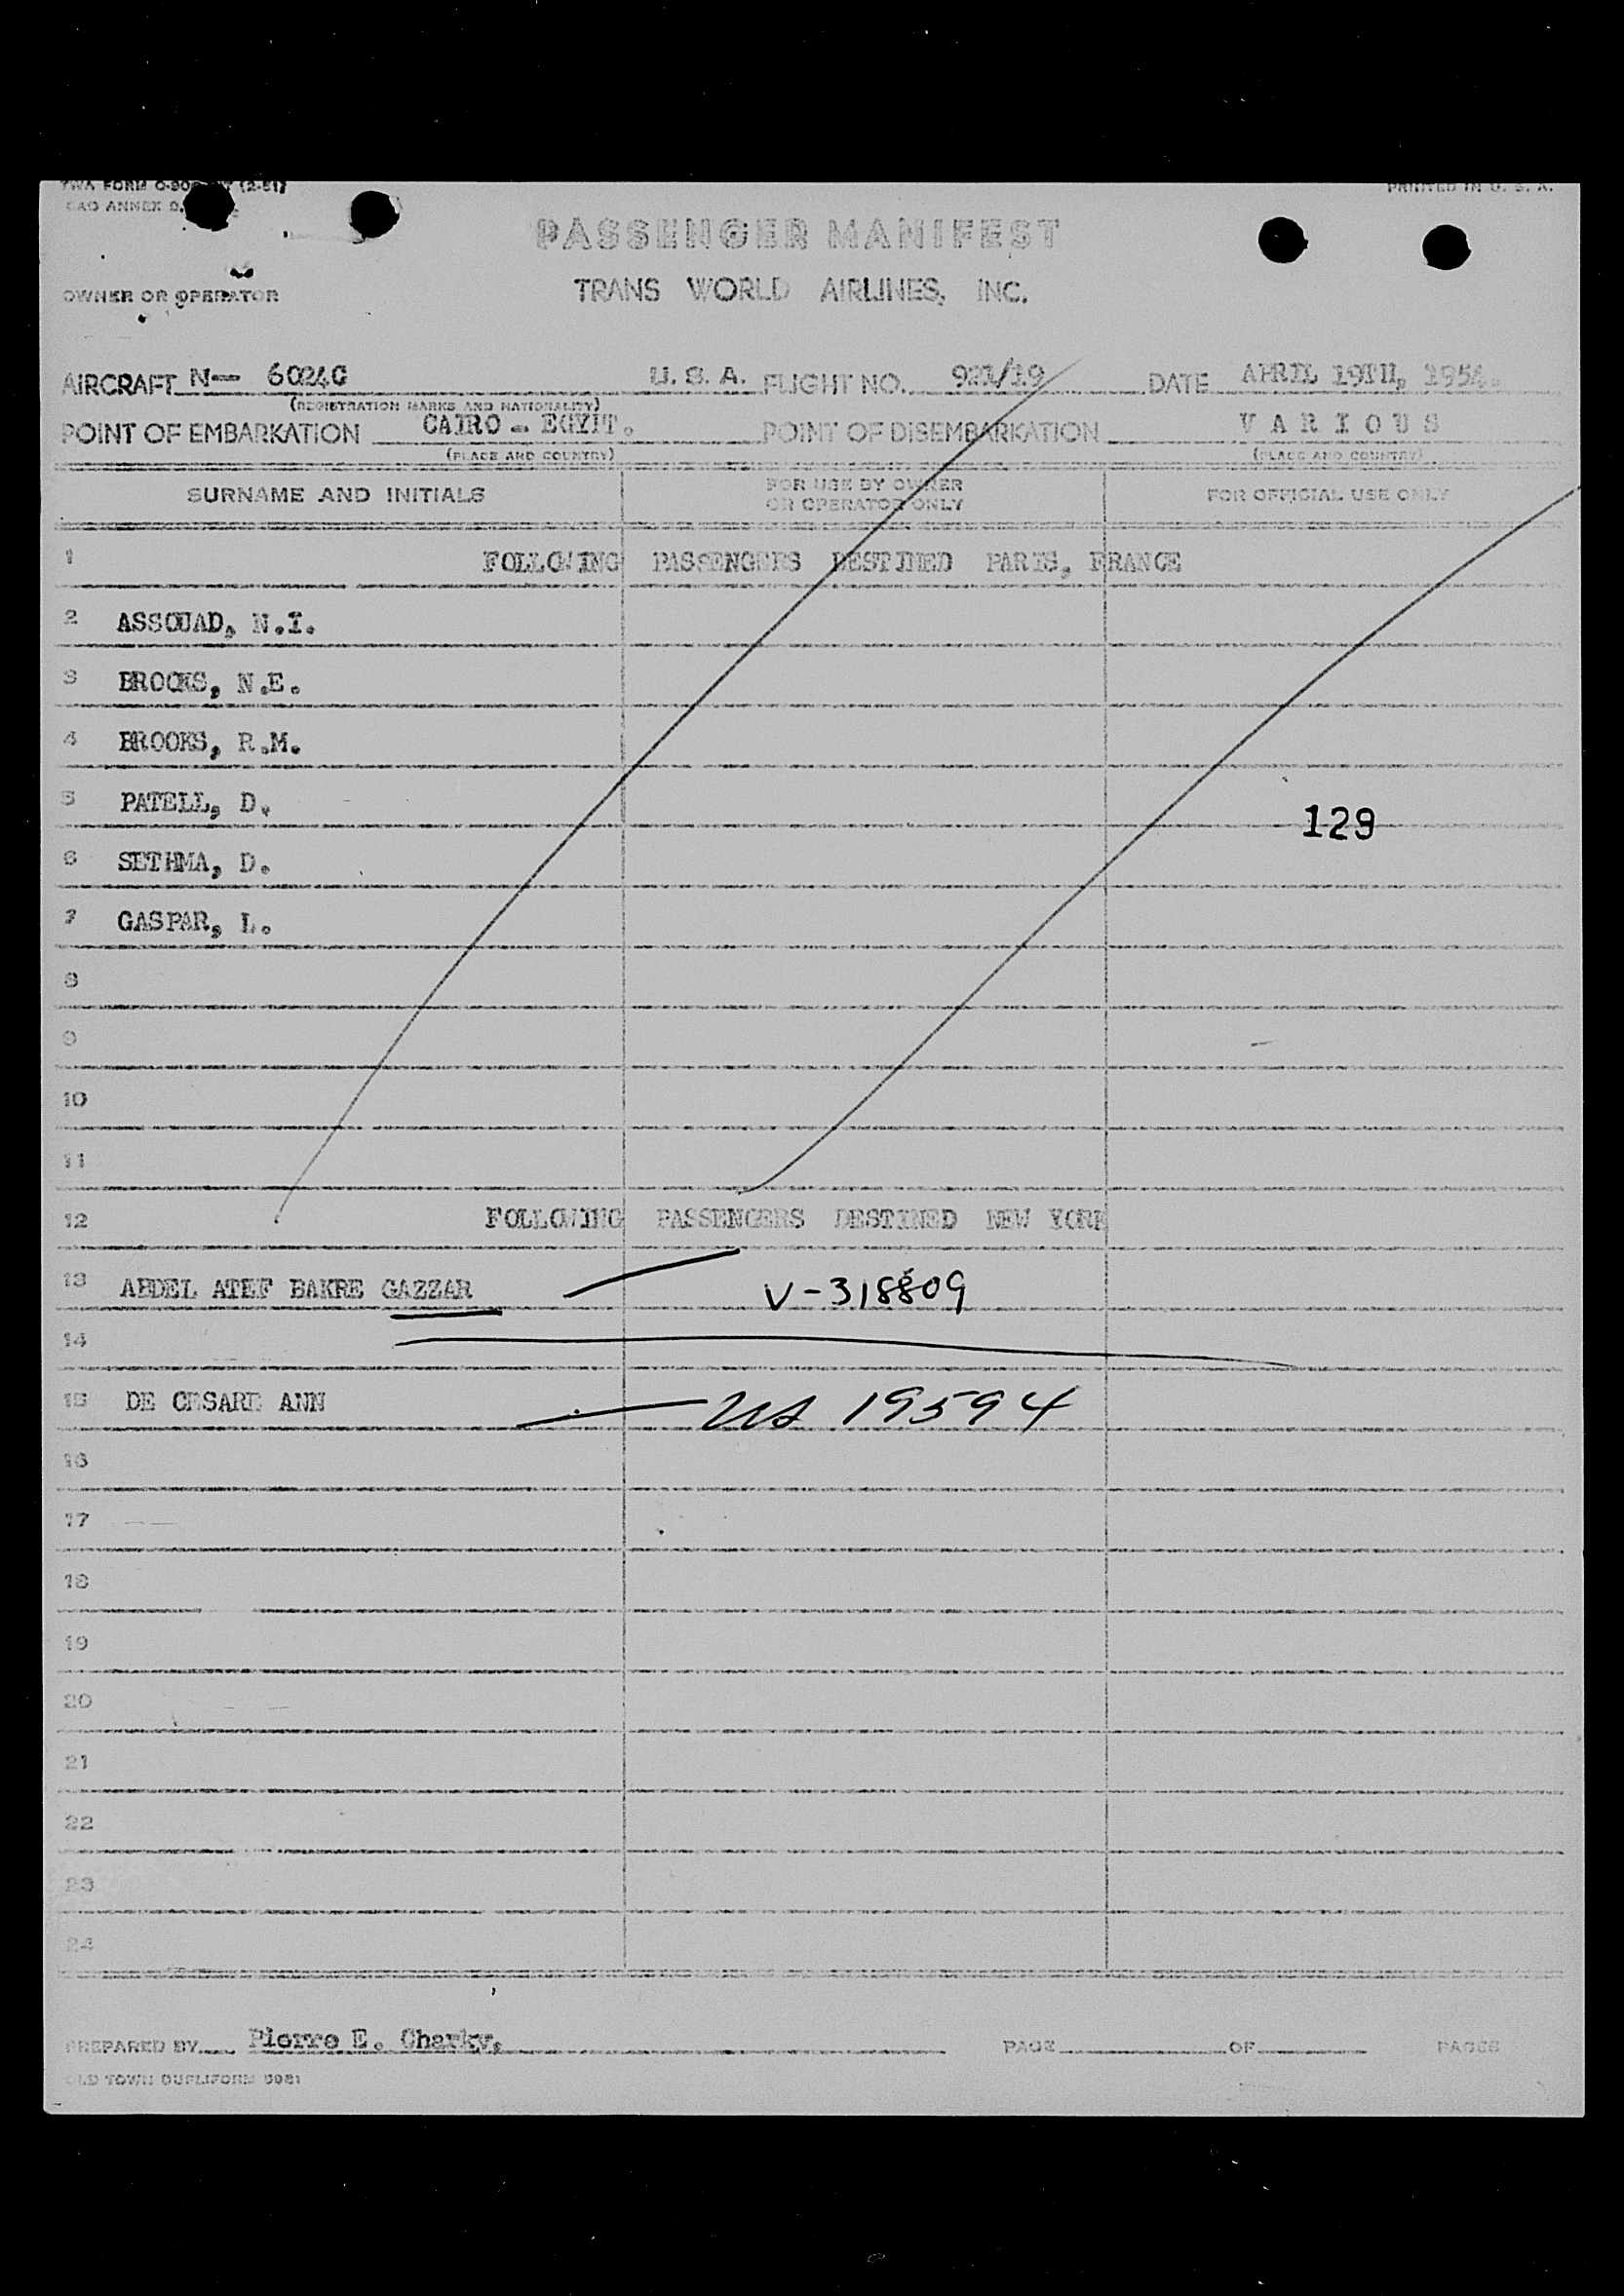 TWA FORM (2-51) PRINTED IN U. S. A.
ANNEX
PASSENGER MANIFEST
OWNER OR OPERATOR TRANS WORLD AIRLINES, INC.
AIRCRAFT N— 6024C U. S. A. FLIGHT NO. 921/19 DATE APRIL 19TH, 1954.
(REGISTRATION MARKS AND NATIONALITY)
POINT OF EMBARKATION CAIRO - EGYPT. POINT OF DISEMBARKATION V A R I O U S
(PLACE AND COUNTRY) (PLACE AND COUNTRY)
SURNAME AND INITIALS FOR USE BY OWNER OR OPERATOR ONLY FOR OFFICIAL USE ONLY
1 FOLLOWING PASSENGERS DESTINED PARIS, FRANCE
2 ASSOUAD, N.I.
3 BROOKS, N.E.
4 BROOKS, R.M.
5 PATELL, D.
129
6 SETHMA, D.
7 GASPAR, L.
8
9
10
11
12 FOLLOWING PASSENGERS DESTINED NEW YORK
13 ABDEL ATEF BAKRE GAZZAR V-318809
14
15 DE CESARE ANN US 19594
16
17
18
19
20
21
22
23
24
PREPARED BY Pierre E. Charky, PAGE OF PAGES
OLD TOWN DUPLIFORM 5981